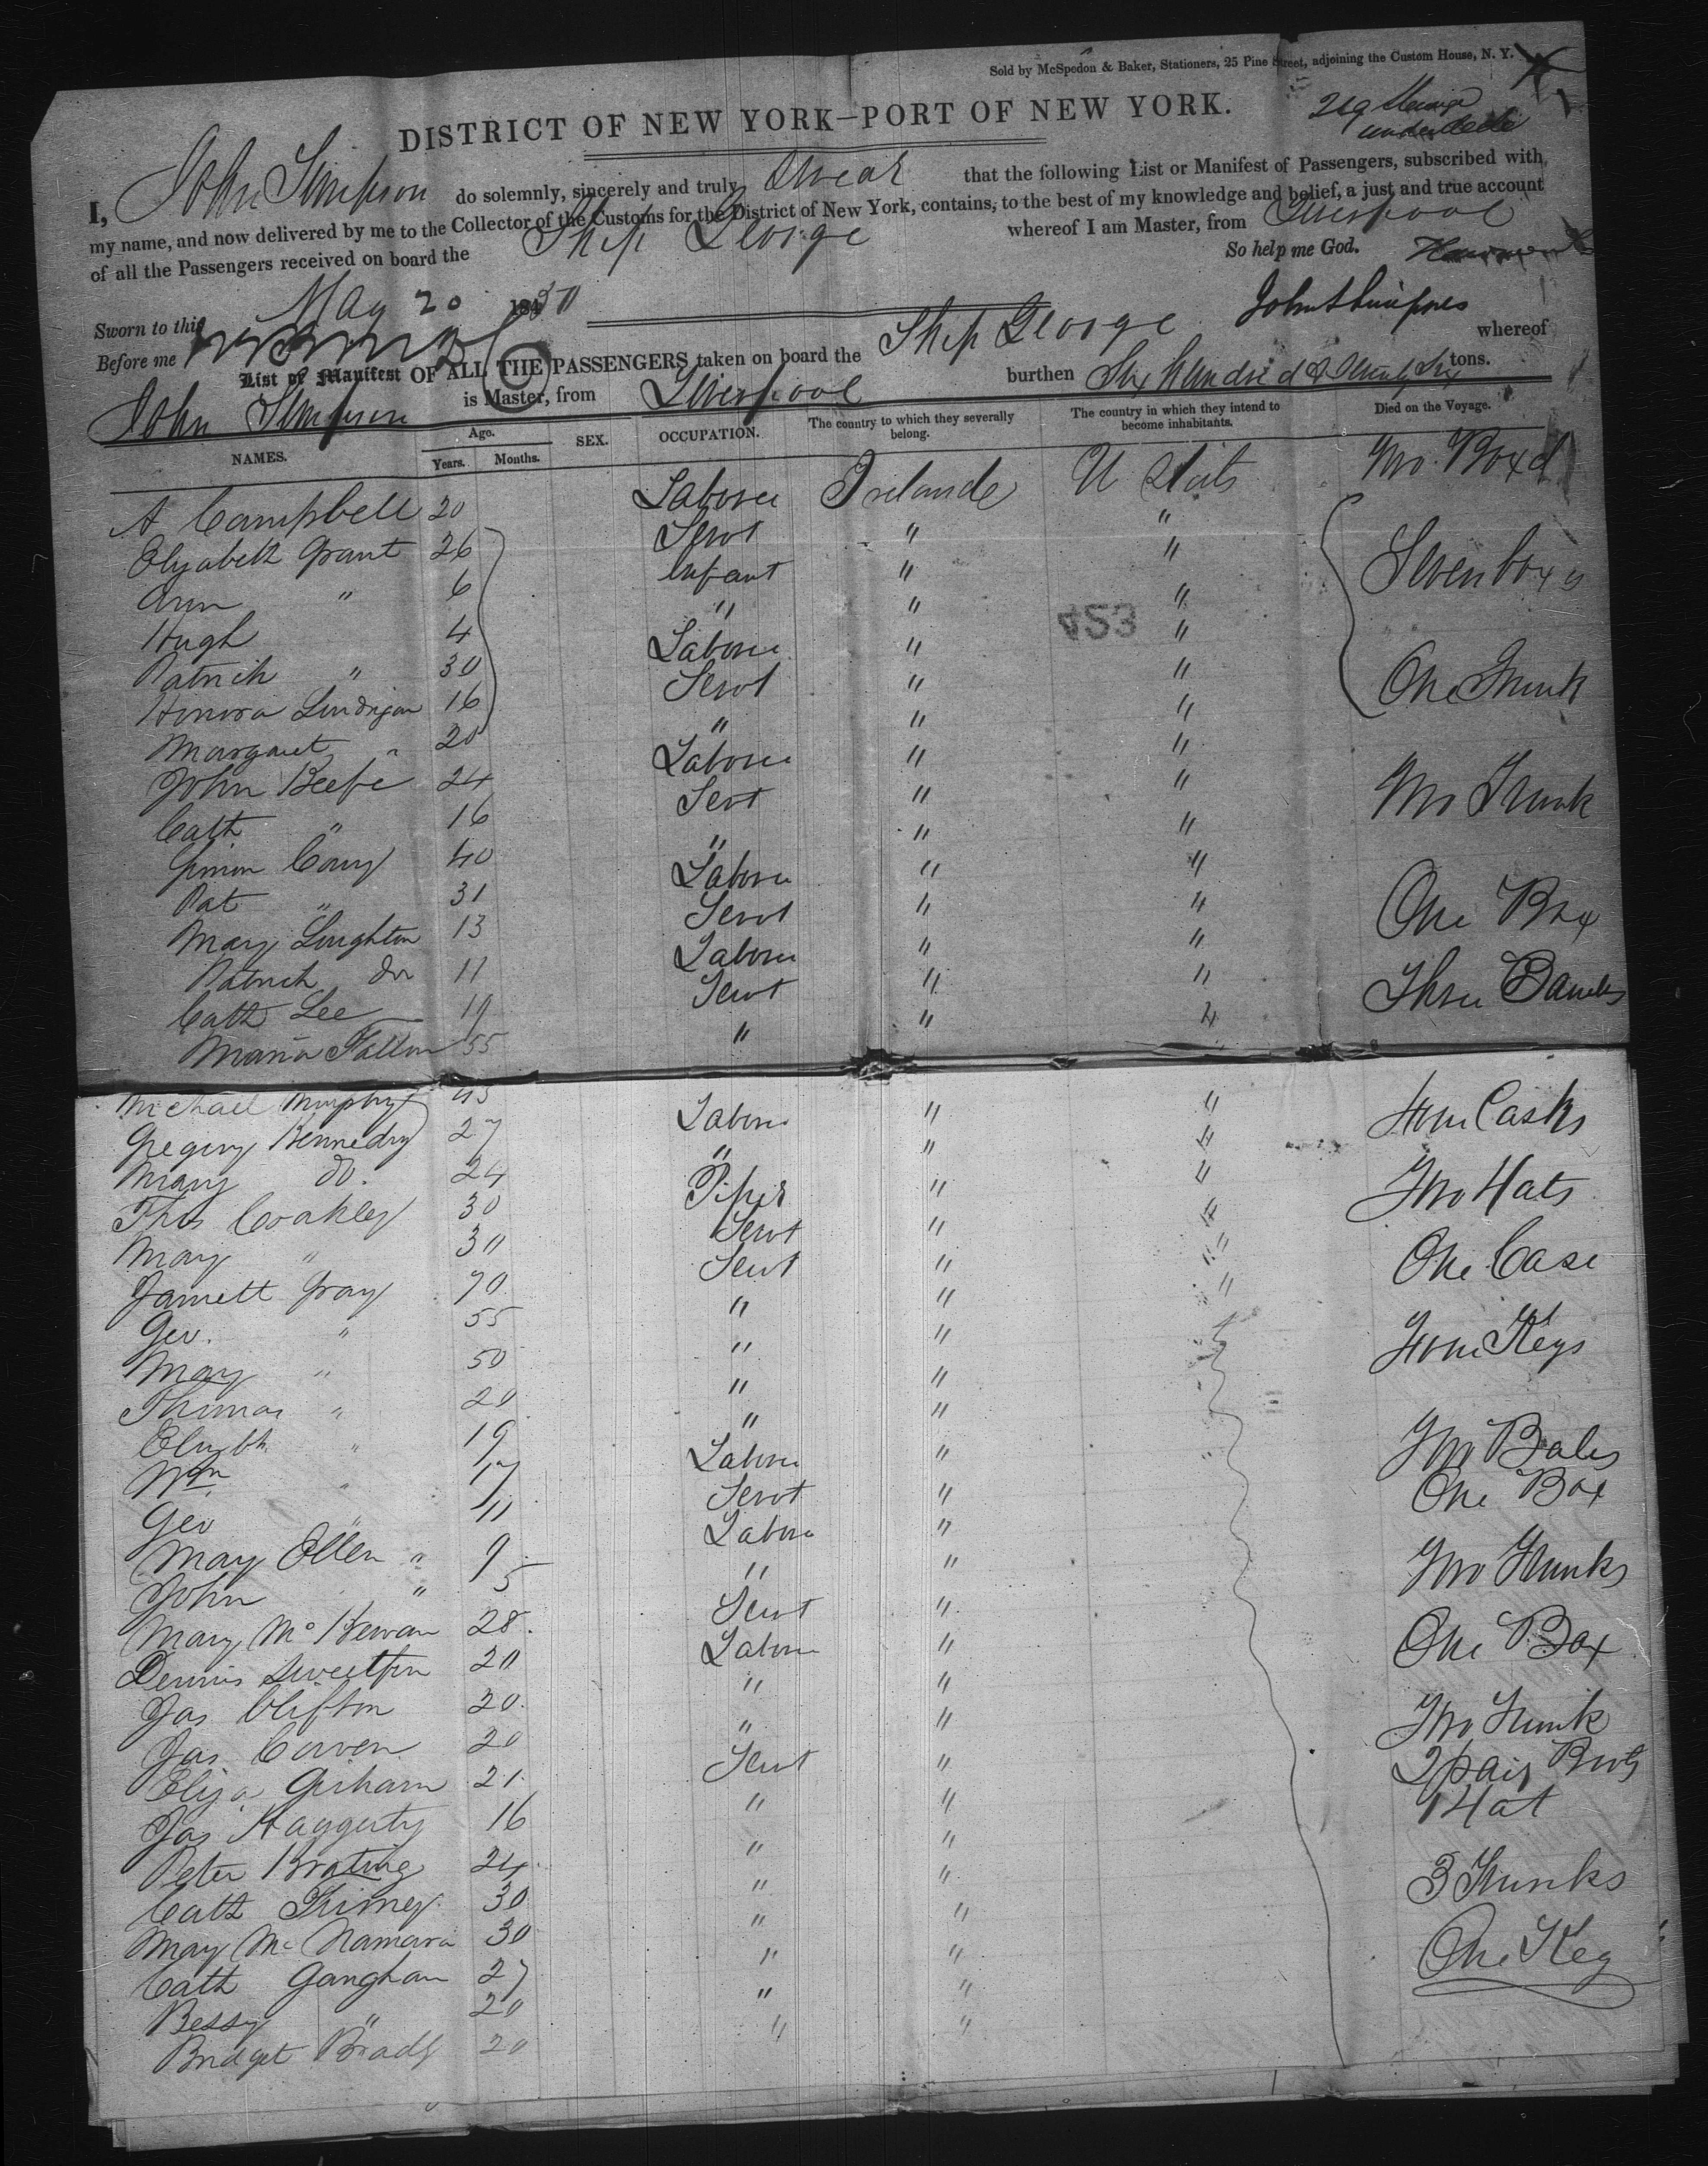 Sold by McSpedon & Baker, Stationers, 25 Pine Street, adjoining the Custom House, N. Y.
DISTRICT OF NEW YORK—PORT OF NEW YORK.
219 Steerage
I, John Simpson do solemnly, sincerely and truly Swear that the following List or Manifest of Passengers, subscribed with
my name, and now delivered by me to the Collector of the Customs for the District of New York, contains, to the best of my knowledge and belief, a just and true account
of all the Passengers received on board the Ship George whereof I am Master, from Liverpool
So help me God.
Sworn to this May 20 1850
John Simpson
Before me
List or Manifest OF ALL THE PASSENGERS taken on board the Ship George whereof
John Simpson is Master, from Liverpool burthen Six hundred & Ninety Six tons.
NAMES. Age. Years. Months. SEX. OCCUPATION. The country to which they severally belong. The country in which they intend to become inhabitants. Died on the Voyage.
A Campbell 20 Laborer Irelande U Stats Two Boxd
Elyabeth Grant 26 Servt " "
Ann " 6 Infant " "
Hugh 4 " " " Seven boxes
Patrick " 30 Laborer " "
Honora Lundrigan 16 Servt " " One Trunk
Margaret " 20 " " "
John Keefe 24 Laborer " "
Cath " 16 Servt " " Two Trunk
Simon Cony 40 " " "
Pat " 31 Laborer " "
Mary Loughton 13 Servt " " One Box
Patrick do 11 Laborer " "
Cath Lee 19 Servt " " Three Barrels
Maria Fallon 55 " " "
Michael Murphy 45 Labore " " Four Casks
Gregory Kennedy 27 " " "
Mary do. 24 " " Two Hats
Thos Coakley 30 Servt " "
Mary " 30 Servt " " One Case
Jarrett Gray 70 " " "
Geo. " 55 " " Four Kegs
Mary " 50 " "
Thomas " 20 " "
Elizbth " 19 Labore " Two Bales
Wm " 17 Servt " One Box
Geo " 11 Labore "
Mary Ellen " 9 " " Two Trunks
John " 5 Servt "
Mary McKewan 28. Labore " One Box
Dennis 20 " "
Jas Clifton 20. " " Two Trunk
Jas Cowen 20 Servt " 2 pair Boots
Eliza Griham 21. " " 1 Hat
Jas Haggerty 16 " "
Peter Krating 24. " " 3 Trunks
Cath 30 " "
Mary McNamara 30 " " One Keg
Cath Ganghan 27 " "
Bessy " 20 " "
Bridget Brady 20
423